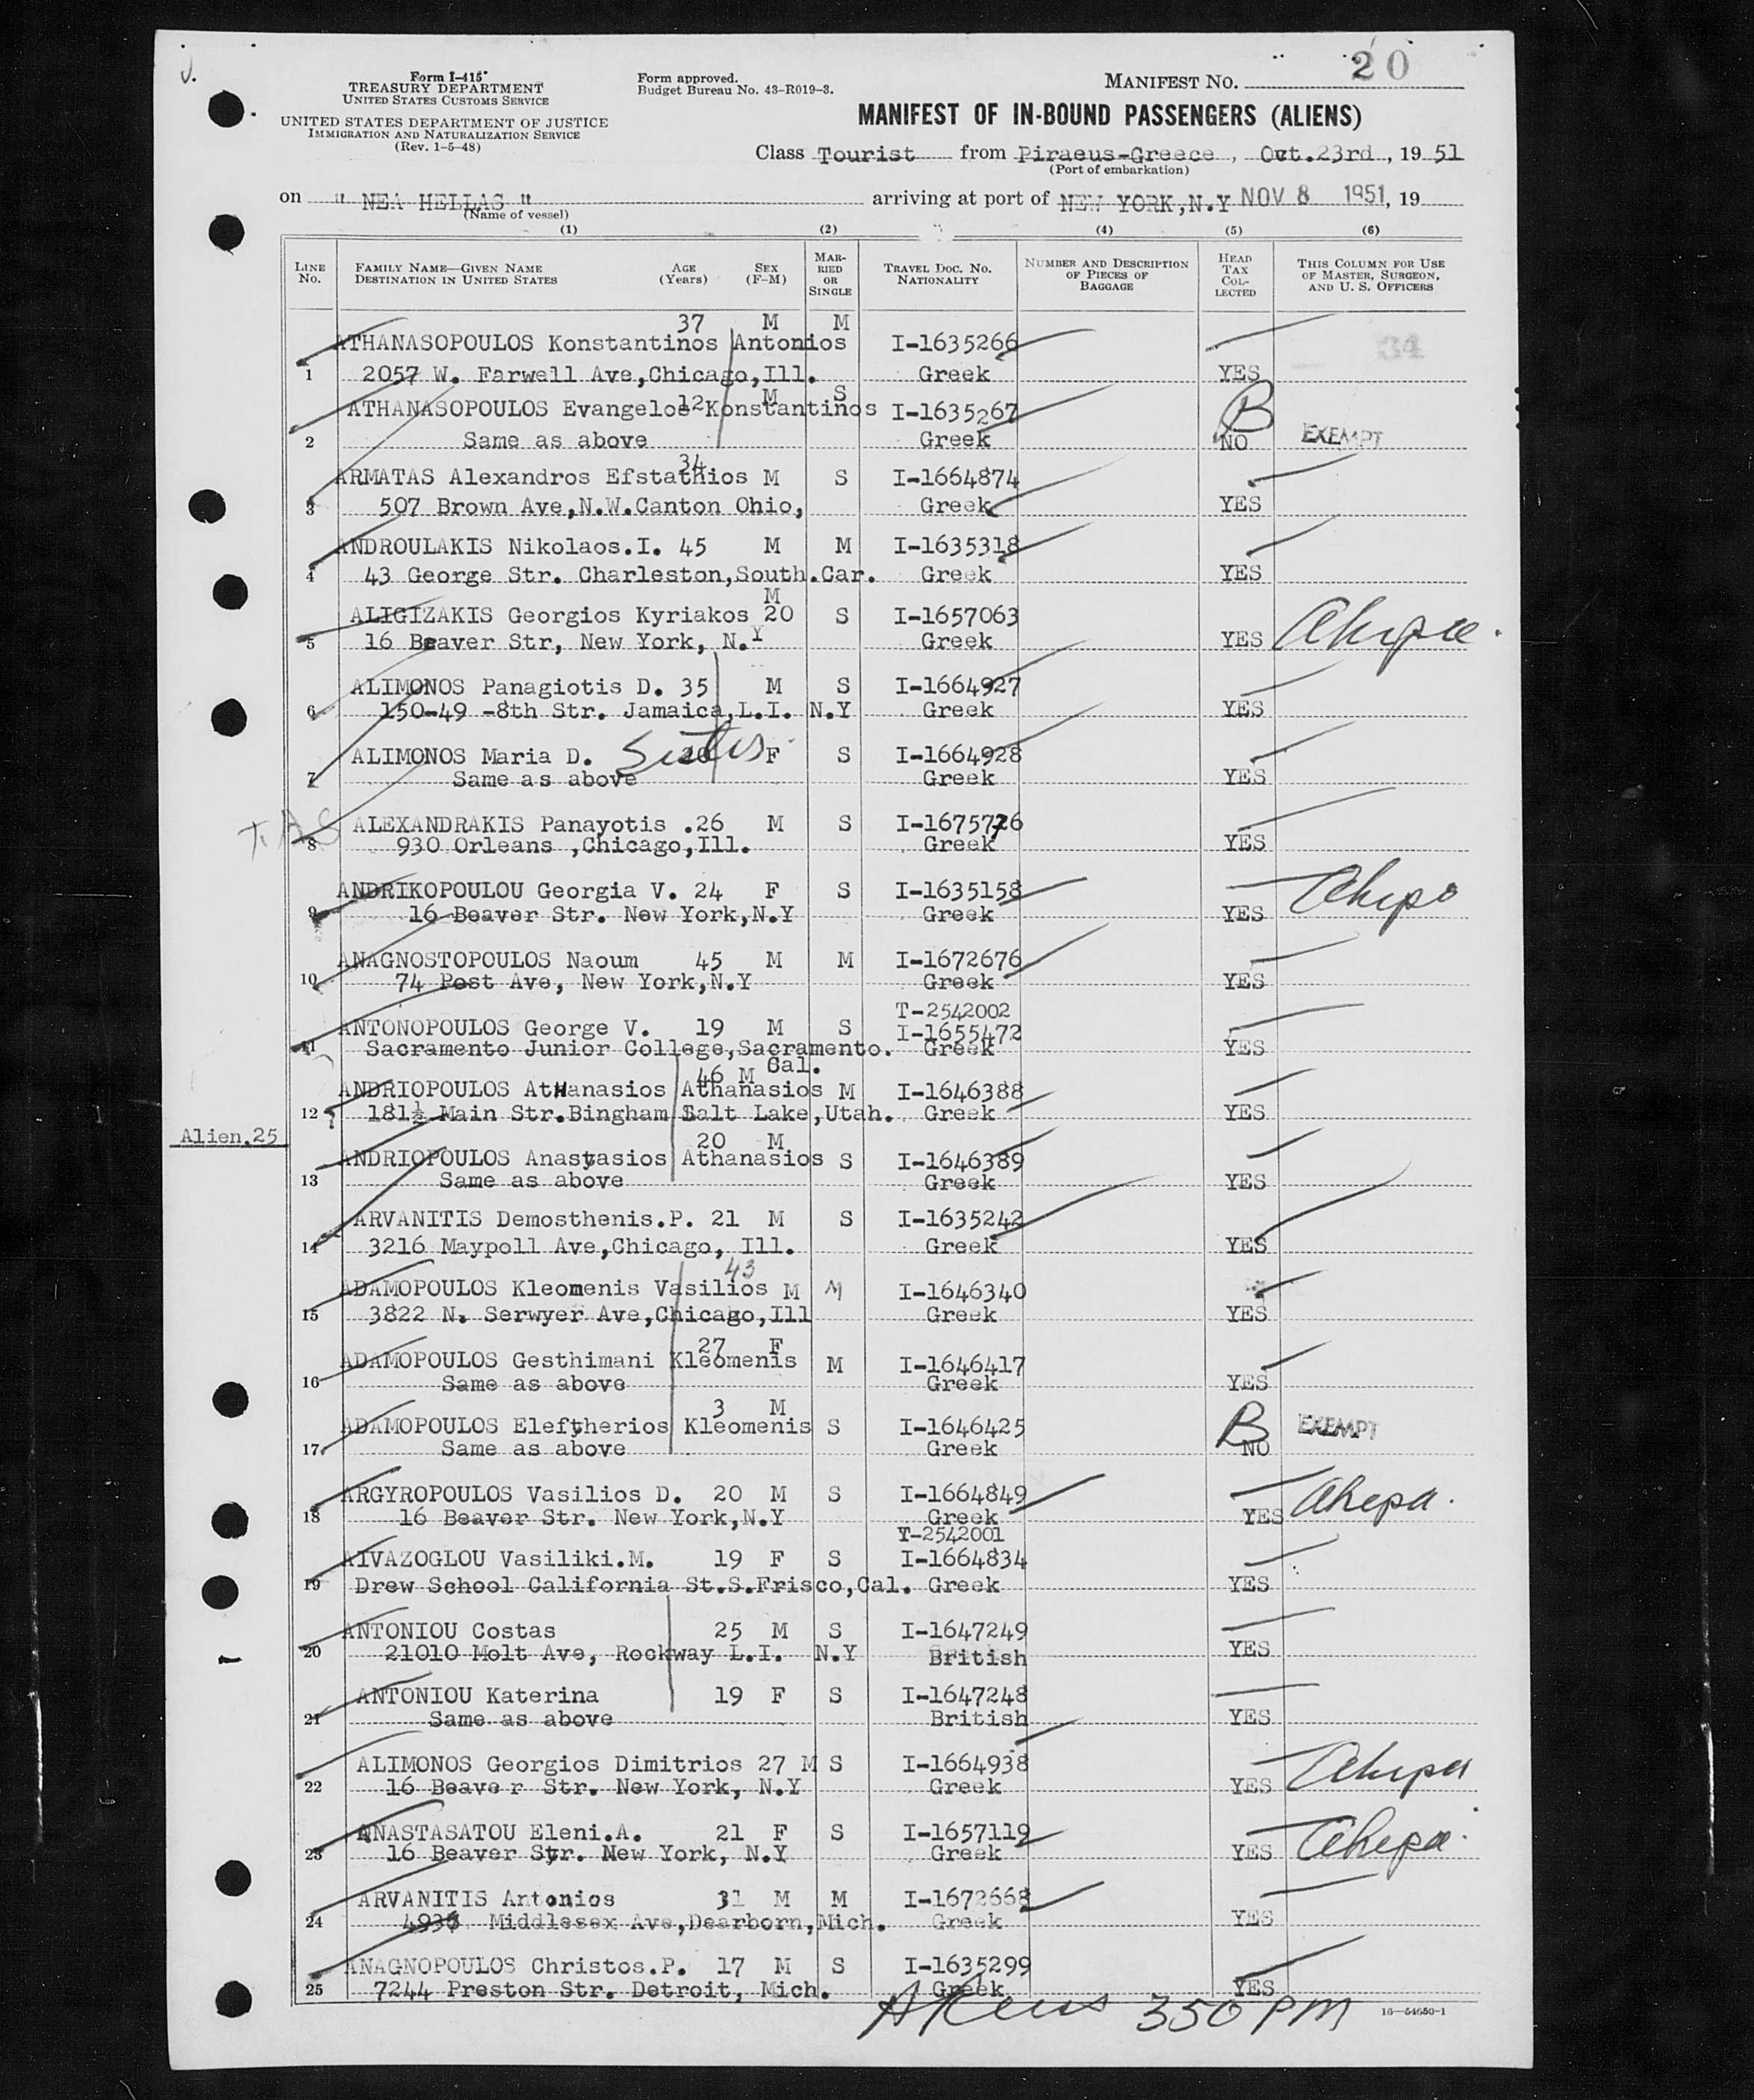 20
Form I-415
TREASURY DEPARTMENT
UNITED STATES CUSTOMS SERVICE
UNITED STATES DEPARTMENT OF JUSTICE
IMMIGRATION AND NATURALIZATION SERVICE
(Rev. 1-5-48)
Form approved.
Budget Bureau No. 43-R019-3.
MANIFEST NO.
MANIFEST OF IN-BOUND PASSENGERS (ALIENS)
Class Tourist from Piraeus-Greece, Oct.23rd, 19 51
(Port of embarkation)
on " NEA HELLAS " arriving at port of NEW YORK,N.Y NOV 8 1951, 19
(Name of vessel)
(1) (2) (4) (5) (6)
LINE NO.
FAMILY NAME—GIVEN NAME
DESTINATION IN UNITED STATES
AGE (Years)
SEX (F-M)
MARRIED OR SINGLE
TRAVEL DOC. NO.
NATIONALITY
NUMBER AND DESCRIPTION OF PIECES OF BAGGAGE
HEAD TAX COLLECTED
THIS COLUMN FOR USE OF MASTER, SURGEON, AND U. S. OFFICERS
37 M M
ATHANASOPOULOS Konstantinos Antonios I-1635266 34
1 2057 W. Farwell Ave,Chicago,Ill. Greek YES
12 M S
ATHANASOPOULOS Evangelos Konstantinos I-1635267 B
2 Same as above Greek NO EXEMPT
34
ARMATAS Alexandros Efstathios M S I-1664874
3 507 Brown Ave,N.W.Canton Ohio, Greek YES
ANDROULAKIS Nikolaos.I. 45 M M I-1635318
4 43 George Str. Charleston,South.Car. Greek YES
M
ALIGIZAKIS Georgios Kyriakos 20 S I-1657063
5 16 Beaver Str, New York, N.Y Greek YES Ahepa.
ALIMONOS Panagiotis D. 35 M S I-1664927
6 150-49 -8th Str. Jamaica,L.I. N.Y Greek YES
ALIMONOS Maria D. F S I-1664928
7 Same as above Greek YES
ALEXANDRAKIS Panayotis .26 M S I-1675776
8 930 Orleans ,Chicago,Ill. Greek YES
ANDRIKOPOULOU Georgia V. 24 F S I-1635158
9 16 Beaver Str. New York,N.Y Greek YES Ahepa
ANAGNOSTOPOULOS Naoum 45 M M I-1672676
10 74 Post Ave, New York,N.Y Greek YES
T-2542002
ANTONOPOULOS George V. 19 M S I-1655472
11 Sacramento Junior College,Sacramento. Greek YES
Cal.
46 M
ANDRIOPOULOS Athanasios Athanasios M I-1646388
12 181½ Main Str.Bingham Salt Lake,Utah. Greek YES
Alien.25
20 M
ANDRIOPOULOS Anastasios Athanasios S I-1646389
13 Same as above Greek YES
ARVANITIS Demosthenis.P. 21 M S I-1635242
14 3216 Maypoll Ave,Chicago, Ill. Greek YES
43
ADAMOPOULOS Kleomenis Vasilios M M I-1646340
15 3822 N. Serwyer Ave,Chicago,Ill Greek YES
27 F
ADAMOPOULOS Gesthimani Kleomenis M I-1646417
16 Same as above Greek YES
3 M
ADAMOPOULOS Eleftherios Kleomenis S I-1646425 B EXEMPT
17 Same as above Greek NO
ARGYROPOULOS Vasilios D. 20 M S I-1664849
18 16 Beaver Str. New York,N.Y Greek YES Ahepa.
T-2542001
AIVAZOGLOU Vasiliki.M. 19 F S I-1664834
19 Drew School California St.S.Frisco,Cal. Greek YES
ANTONIOU Costas 25 M S I-1647249
20 21010 Molt Ave, Rockway L.I. N.Y British YES
ANTONIOU Katerina 19 F S I-1647248
21 Same as above British YES
ALIMONOS Georgios Dimitrios 27 M S I-1664938
22 16 Beave r Str. New York, N.Y Greek YES Ahepa
ANASTASATOU Eleni.A. 21 F S I-1657119
23 16 Beaver Str. New York, N.Y Greek YES Ahepa.
ARVANITIS Antonios 31 M M I-1672668
24 Middlesex Ave,Dearborn,Mich. Greek YES
ANAGNOPOULOS Christos.P. 17 M S I-1635299
25 7244 Preston Str. Detroit, Mich. Greek YES
350 PM
16—54650-1